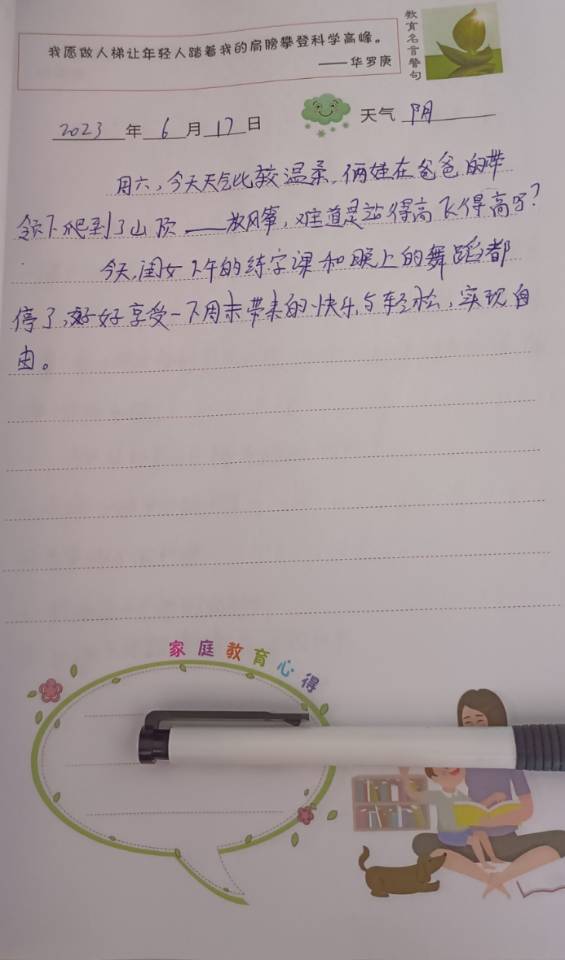 我愿做人梯让年轻人踏着我的肩膀攀登科学高峰。
——华罗庚
教育名言警句
2023年6月17日 天气 阴
周六,今天天气比较温柔,俩娃在爸爸的带
领下爬到了山顶——放风筝,难道是站得高飞得高吗?
今天,闺女下午的练字课和晚上的舞蹈都
停了,好好享受一下周末带来的快乐与轻松,实现自
由。
家庭教育心得